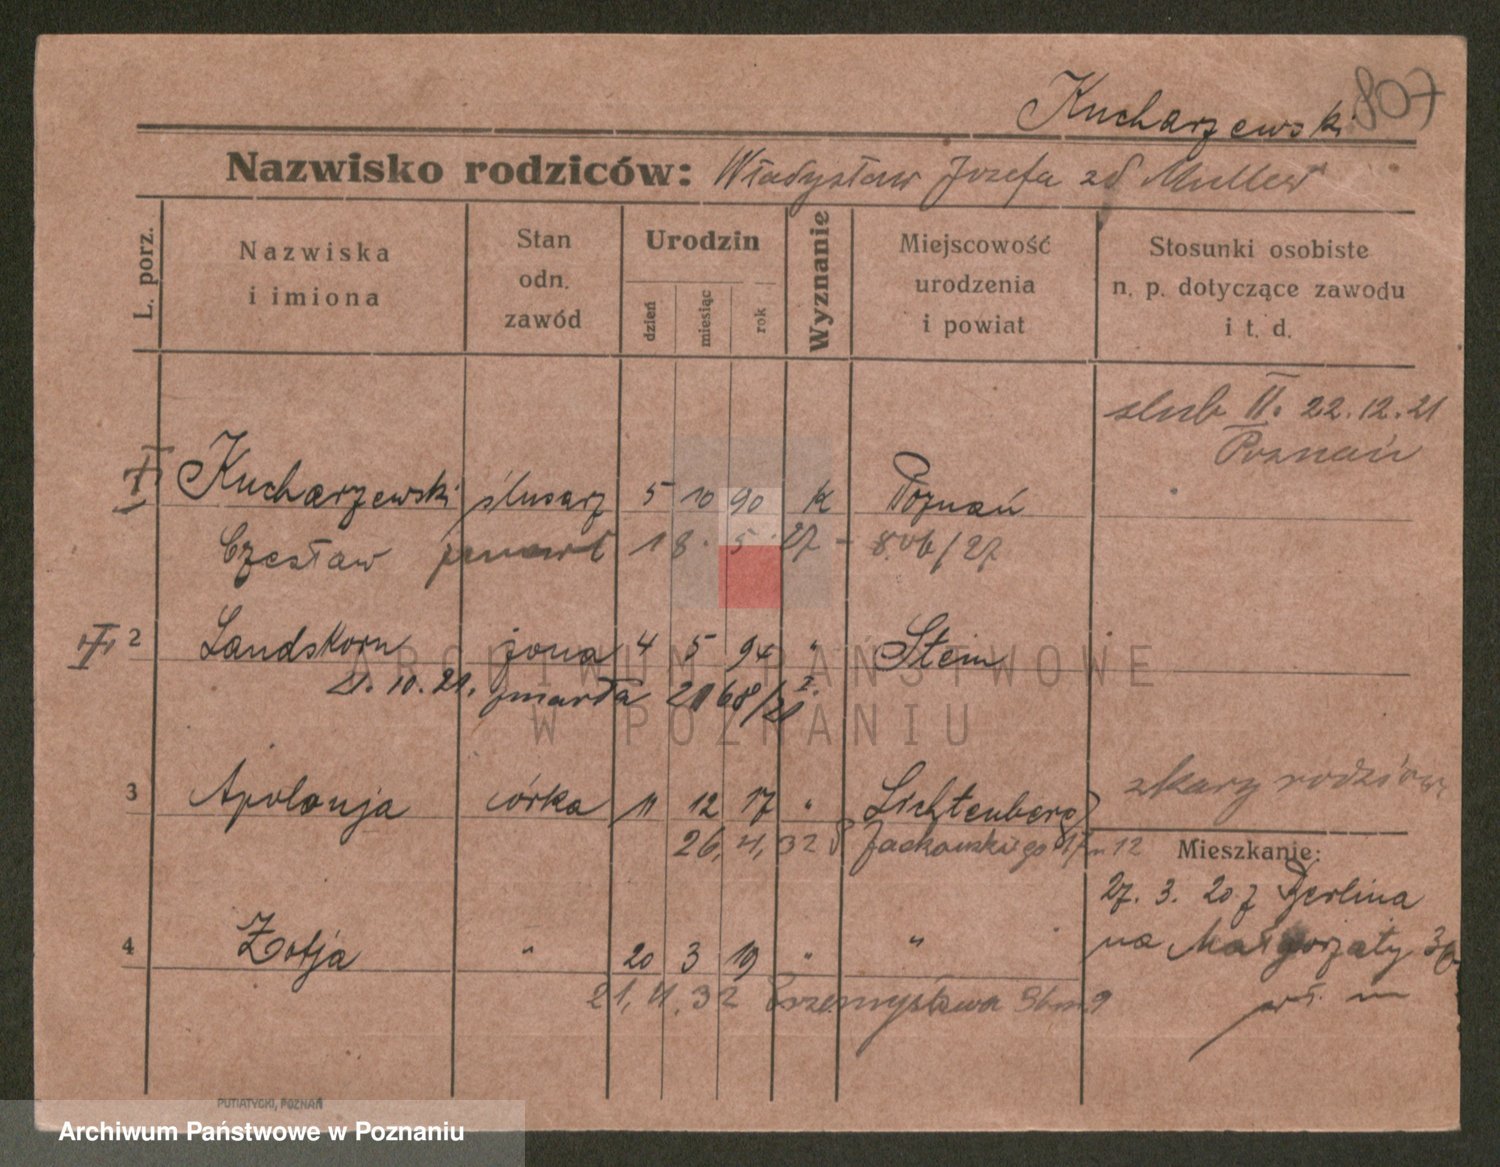 Kucharzewski 807
Nazwisko rodziców: Władysław Józefa zd Muller
L. porz.
Nazwiska i imiona
Stan odn. zawód
Urodzin
dzień
miesiąc
rok
Wyznanie
Miejscowość urodzenia i powiat
Stosunki osobiste n. p. dotyczące zawodu i t. d.
slub II. 22.12.21
Poznań
Kucharzewski ślusarz 5 10 90 k Poznań
Czesław zmarł 18. 5. 27 - 806/27
2 Landskorn żona 4 5 94 " Stein
21. 10. 21. zmarła
3 Apolonja córka 11 12 17 " Lichtenberg
z kary rodziców
26, 4, 32 Jackowskiego 17 m 12
Mieszkanie:
27. 3. 20. z Berlina
4 Zofja " 20 3 19 " "
na Małgorzaty
21, 4, 32 Przemysława
PUTIATYCKI, POZNAŃ
ARCHIWUM PAŃSTWOWE
W POZNANIU
Archiwum Państwowe w Poznaniu